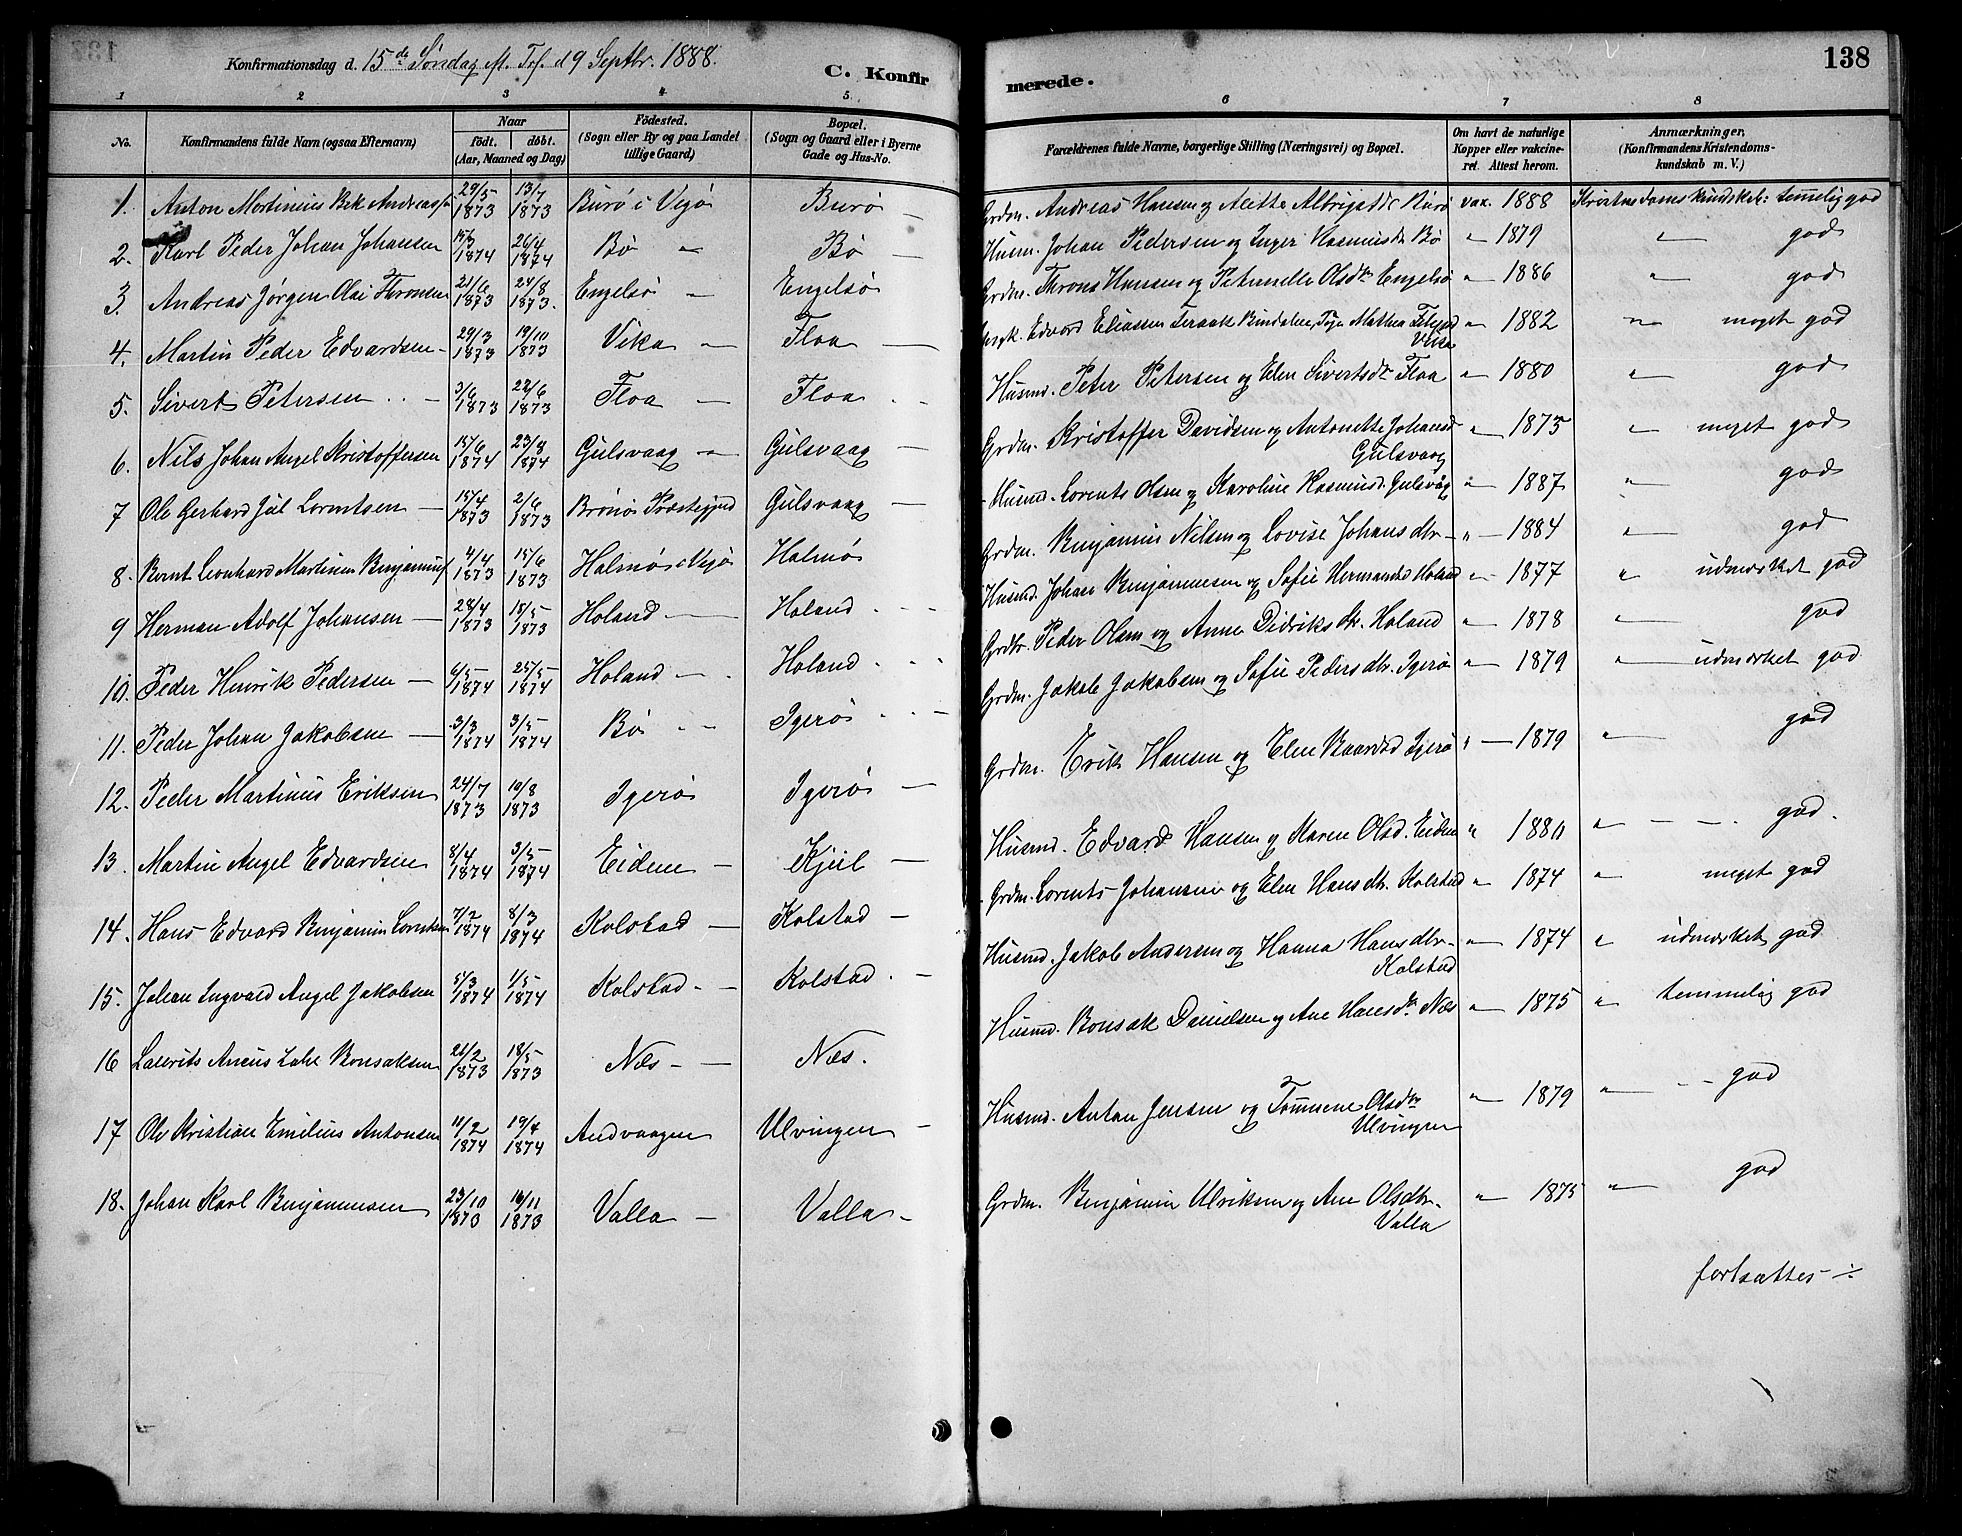 Konfirmationsdag d. 15de Søndag eft. Tref. d 9 Septbr. 1888.
C. Konfirmerede.
138
1 2 3 4 5 6 7 8
No.
Konfirmandens fulde Navn (ogsaa Efternavn)
Naar
födt. döbt.
(Aar, Maaned og Dag)
Födested.
(Sogn eller By og paa Landet
tillige Gaard.)
Bopæl.
(Sogn og Gaard eller i Byerne
Gade og Hus-No.
Forældrenes fulde Navne, borgerlige Stilling (Næringsvei) og Bopæl.
Om havt de naturlige
Kopper eller vakcine-
ret. Attest herom.
Anmærkninger,
(Konfirmandens Kristendoms-
kundskab m. V.)
1. Anton Martinius Bek Andreass 29/5 1873 13/7 1873 Burø i Vegø Burø Grdm. Andreas Hansen og Burø vax. 1888 Kristendomskundskab: temelig god
2. Karl Peder Johan Johansen 15/3 1874 26/4 1874 Bø " Bø Husm. Johan Pedersen og Inger Rasmusdr Bø " 1879 " god
3. Andreas Jørgen Olai Thronsen 21/6 1873 24/8 1873. Engelsø Engelsø Grdm. Throns Hansen og Peternelle Olsdr Engelsø " 1886 " god
4. Martin Peder Edvardsen 29/3 1873 19/10 1873 Vika Floa Edvard Eliassen Bindalen, Mathea Vika " 1882 " meget god
5. Sivert Petersen 3/6 1873 22/6 1873 Floa Floa Husmd. Peter Petersen og Elen Sivertsdr Floa " 1880 " god
6. Nils Johan Angel Kristoffersen 15/6 1874 23/8 1874 Gulsvaag Gulsvaag Grdm. Kristoffer Davidsen og Antonette Johansd Gulsvaag " 1875 " meget god
7 Ole Gerhard Jul Lorentsen 15/4 1873 2/6 1873 Brønø Præstegjeld Gulsvaag Husmd. Lorents Olsen og Karoline Rasmusd. Gulsvåg " 1887 " god
8. Bernt Leonhard Martinus Benjamins 4/4 1873 15/6 1873 Halmø i Vegø Halmø Grdm. Benjamin Nilsen og Lovise Johansdtr " 1884 " god
9 Herman Adolf Johansen 28/4 1873 18/5 1873 Holand Holand Husmd. Johan Benjaminsen og Sofie Hermansd Holand " 1877 " udmærket god
10. Peder Henrik Pedersen 6/5 1874 25/5 1874 Holand Holand Grdbr. Peder Olsen og Anne Didriksdr. Holand " 1878 " god
11. Peder Johan Jakobsen 3/3 1874 3/5 1874 Bø Igerø Grdm. Jakob Jakobsen og Sofie Pedersdtr. Igerø " 1879 " udmærket god
12. Peder Martinius Eriksen 24/7 1873 10/8 1873 Igerø Igerø Grdm. Erik Hansen og Elen Baardsd Igerø " 1879 " god
13. Martin Angel Edvardsen 8/4 1874 3/5 1874 Eidem Kjul Husmd. Edvard Hansen og Maren Olsd. Eidem " 1880 " god.
14. Hans Edvard Benjamin Lorntsen 7/2 1874 8/3 1874 Kolstad Kolstad Grdm. Lorents Johansen og Elen Hansdtr. Kolstad " 1874 " meget god
15. Johan Ingvard Angel Jakobsen 5/3 1874 1/5 1874 Kolstad Kolstad Husmd. Jakob Andersen og Hanna Hansdtr Kolstad " 1874 " udmærket god
16 Laurits Bonsaksen 21/2 1873 18/5 1873 Næs Næs. Husmd. Bonsak Danielsen og Ane Hansdr Næs " 1875 " temmelig god
17 Ole Kristian Emilius Antonsen 11/2 1874 19/4 1874 Andvaagen Ulvingen Husmd. Anton Jensen og Tomine Olsdtr Ulvingen " 1879 " god
18. Johan Karl Benjaminsen 23/10 1873 16/11 1873 Valla Valla Grdm. Benjamin Ulriksen og Ane Olsdtr. Valla " 1875 " god
fortsættes ÷